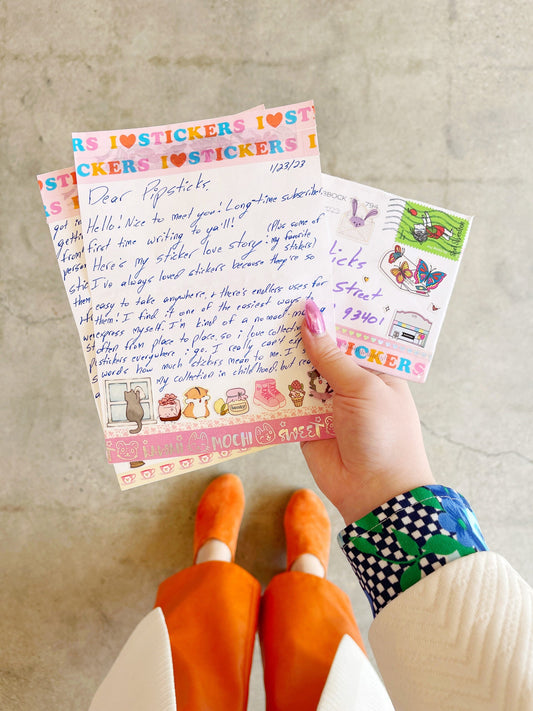 RS I ❤ STICKERS I ❤
I ❤ STICKERS
1/23/23
Dear Pipsticks,
Hello! Nice to meet you! Long-time subscriber,
first time writing to ya'll!
(Plus some of
my favorite
stickers)
Here's my sticker love story:
I've always loved stickers because they're so
easy to take anywhere, + there's endless uses for
them! I find it one of the easiest ways to
express myself. I'm kind of a nomad moving
often from place to place, so i love
stickers everywhere i go. I really can't
words how much stickers mean to me. I
my collection in childhood, but
MOCHI SWEET
ST
got in
getting
from
person
them
was
794
licks
Street
93401
STICKERS